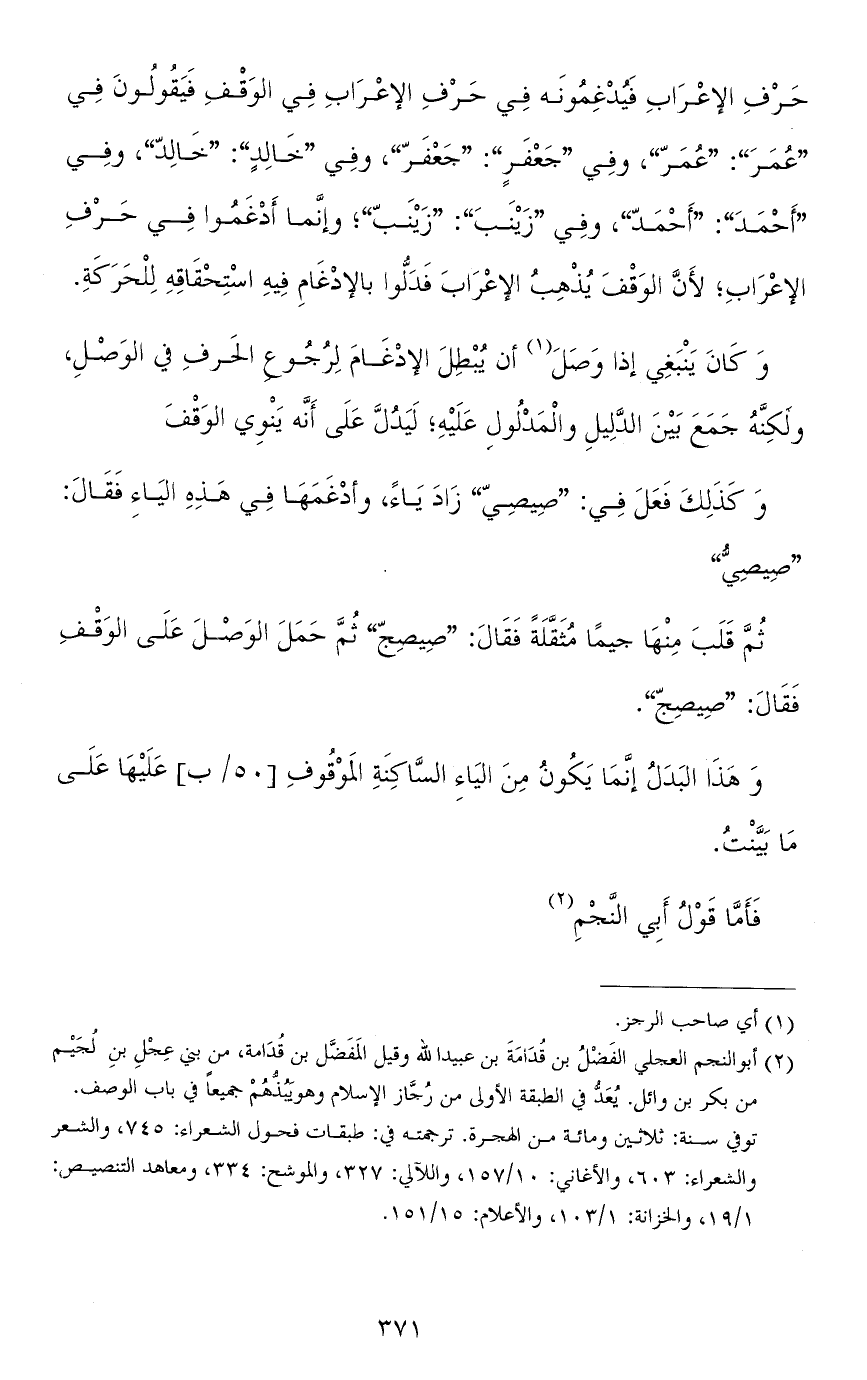 حَرْفِ الإعْرَابِ فَيُدْغِمُونَه فِي حَرْفِ الإعْرَابِ فِي الوَقْفِ فَيَقُولُونَ فِي
”عُمَرَ“: ”عُمَرّ“، وفِي ”جَعْفَرٍ“: ”جَعْفَرّ“، وفِي ”خَالِدٍ“: ”خَالِدّ“، وفِي
”أَحْمَدَ“: ”أَحْمَدّ“، وفِي ”زَيْنَبَ“: ”زَيْنَبّ“؛ وإنَّما أَدْغَمُوا فِي حَرْفِ
الإعْرَابِ؛ لأنَّ الوَقْفَ يُذْهِبُ الإعْرَابَ فَدَلُّوا بالإدْغَامِ فِيه اسْتِحْقَاقِهِ لِلْحَرَكَةِ.
وَ كَانَ يَنْبَغِي إذا وَصَلَ(١) أن يُبْطِلَ الإدْغَامَ لِرُجُوعِ الحَرفِ في الوَصْلِ،
ولَكِنَّهُ جَمَعَ بَيْنَ الدَّلِيلِ والْمَدْلُولِ عَلَيْهِ؛ لَيَدُلَّ عَلَى أَنَّه يَنْوِي الوَقْفَ
وَ كَذَلِكَ فَعَلَ فِي: ”صِيصِيّ“ زَادَ يَاءً، وأدْغَمَهَا فِي هَذِهِ اليَاءِ فَقَالَ:
”صِيصِيٌّ“
ثُمَّ قَلَبَ مِنْهَا جيمًا مُثَقَّلَةً فَقَالَ: ”صِيصِجّ“ ثُمَّ حَمَلَ الوَصْلَ عَلَى الوَقْفِ
فَقَالَ: ”صِيصِجّ“.
وَ هَذَا البَدَلُ إنَّمَا يَكُونُ مِنَ اليَاءِ السَّاكِنَةِ المَوْقُوفِ [٥٠/ ب] عَلَيْهَا عَلَى
مَا بَيَّنْتُ.
فَأَمَّا قَوْلُ أَبِي النَّجْمِ(٢)
(١) أي صاحب الرجز.
(٢) أبوالنجم العجلي الفَضْلُ بن قُدَامَةَ بن عبيدا لله وقيل المَفضَّل بن قُدَامة، من بني عِجْلِ بنِ لُجَيْم
من بكر بن وائل. يُعَدُّ في الطبقة الأولى من رُجَّاز الإسلام وهويَبُذُّهُمْ جميعاً في باب الوصف.
توفي سنة: ثلاثين ومائة من الهجرة. ترجمته في: طبقات فحول الشعراء: ٧٤٥، والشعر
والشعراء: ٦٠٣، والأغاني: ١٥٧/١٠، واللآلي: ٣٢٧، والموشح: ٣٣٤، ومعاهد التنصيص:
١٩/١، والخزانة: ١٠٣/١، والأعلام: ١٥١/١٥.
٣٧١